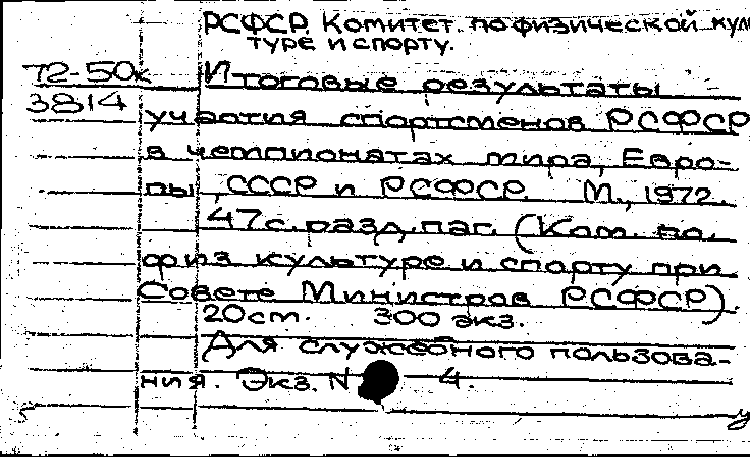 РСФСР. Комитет. по физической куль
туре и спорту.
72-50к Итоговые результаты
3814
участия спортсменов РСФСР
в чемпионатах мира, Евро-
пы, СССР и РСФСР. М., 1972.
47с. разд. паг. (Ком. по
физ культуре и спорту при
Совете Министров РСФСР).
20см. 300 экз.
Для служебного пользова-
ния. Экз. N 4.